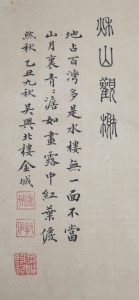 秋山觀㵱
地占百灣多是水樓無一不當
山月裏青䨇澹如畫露中紅葉優
然秋乙丑九秋吳興北樓金城